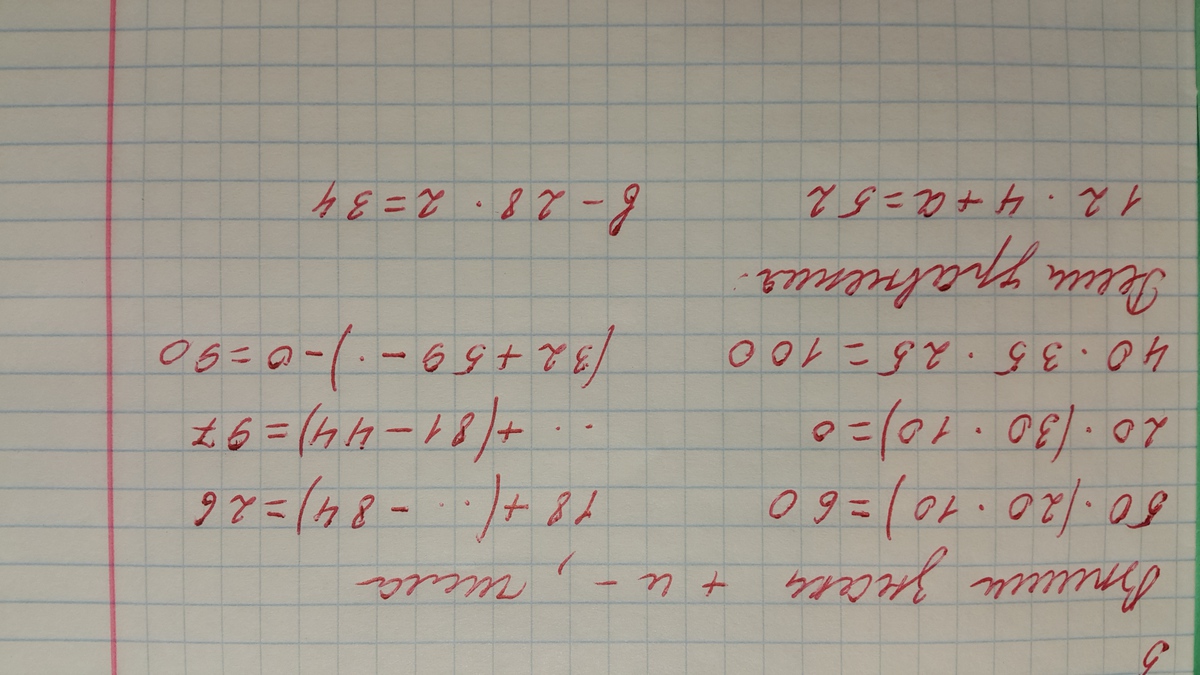 5
Впиши знаки + и - , числа
50 · (20 · 10) = 60 18 + ( . . - 84) = 26
20 · (30 · 10) = 0 . . + (81 - 44) = 97
40 · 35 · 25 = 100 (32 + 59 - · ) - 0 = 90
Реши уравнения.
12 · 4 + a = 52 в - 28 · 2 = 34